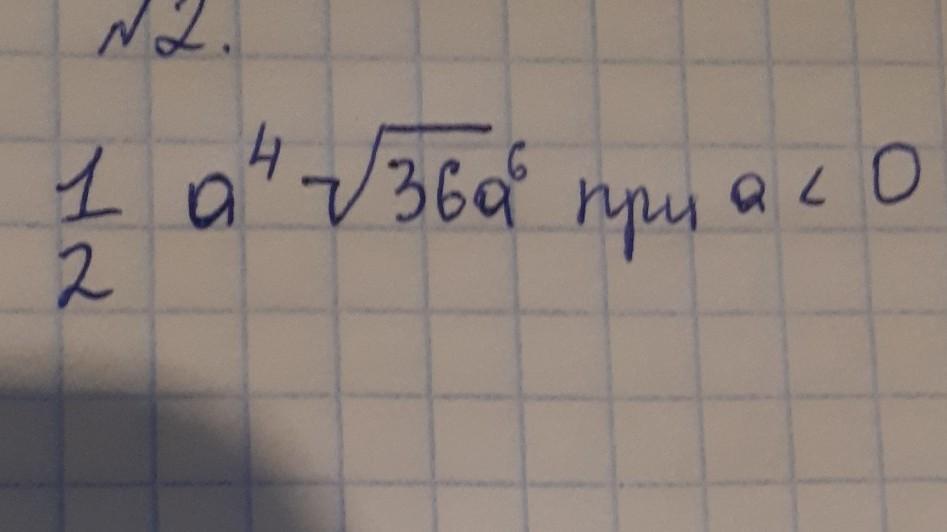 №2.
1/2 a⁴ √36a⁶ при a < 0